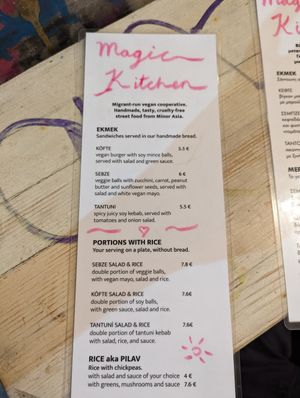 Magic
Kitchen
Migrant-run vegan cooperative.
Handmade, tasty, cruelty-free
street food from Minor Asia.
EKMEK
Sandwiches served in our handmade bread.
KÖFTE 5.5 €
vegan burger with soy mince balls,
served with salad and green sauce.
SEBZE 6 €
veggie balls with zucchini, carrot, peanut
butter and sunflower seeds, served with
salad and white vegan mayo.
TANTUNI 5.5 €
spicy juicy soy kebab, served with
tomatoes and onion salad.
PORTIONS WITH RICE
Your serving on a plate, without bread.
SEBZE SALAD & RICE 7.8 €
double portion of veggie balls,
with vegan mayo, salad and rice.
KÖFTE SALAD & RICE 7.6€
double portion of soy balls,
with green sauce, salad and rice.
TANTUNİ SALAD & RICE 7.6€
double portion of tantuni kebab
with salad, rice, and sauce.
RICE aka PILAV
Rice with chickpeas.
with salad and sauce of your choice 4 €
with greens, mushrooms and sauce 7.6 €
EKMEK
ΚΕΦΤΕ